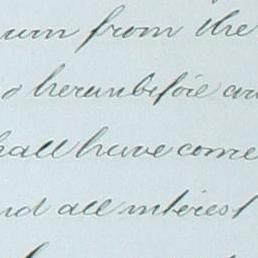 urn from the
o hereinbefore an
hall have come
nd all interest